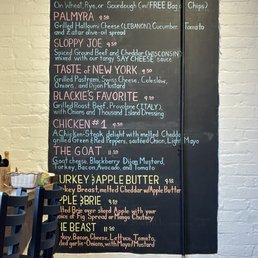 On Wheat, Rye, or Sourdough (w/ FREE Bag o' Chips)
PALMYRA 9.50
Grilled Halloumi Cheese (LEBANON), Cucumber, Tomato
and Za'tar olive-oil spread
SLOPPY JOE 9.50
Spiced Ground Beef and Cheddar (WISCONSIN)
mixed with our tangy SAY CHEESE sauce
TASTE of NEW YORK 9.50
Grilled Pastrami, Swiss Cheese, Coleslaw,
Onions, and Dijon Mustard
BLACKIE'S FAVORITE 9.50
Grilled Roast Beef, Provolone (ITALY),
with Onions and Thousand Island Dressing
CHICKEN #1
A Chicken-Steak delight with melted Cheddar
grilled Green & Red Peppers, sautéed Onion, Light Mayo
THE GOAT 9.50
Goat cheese, Blackberry Dijon Mustard,
Turkey, Bacon, Avocado, and Tomato
TURKEY & APPLE BUTTER 9.50
Turkey Breast, melted Cheddar w/ Apple Butter
APPLE & BRIE 9.50
Melted Brie over sliced Apple with your
choice of Fig Spread or Mango Chutney
THE BEAST
Turkey, Bacon, Cheese, Lettuce, Tomato,
garlic-Onions, with Mayo/Mustard